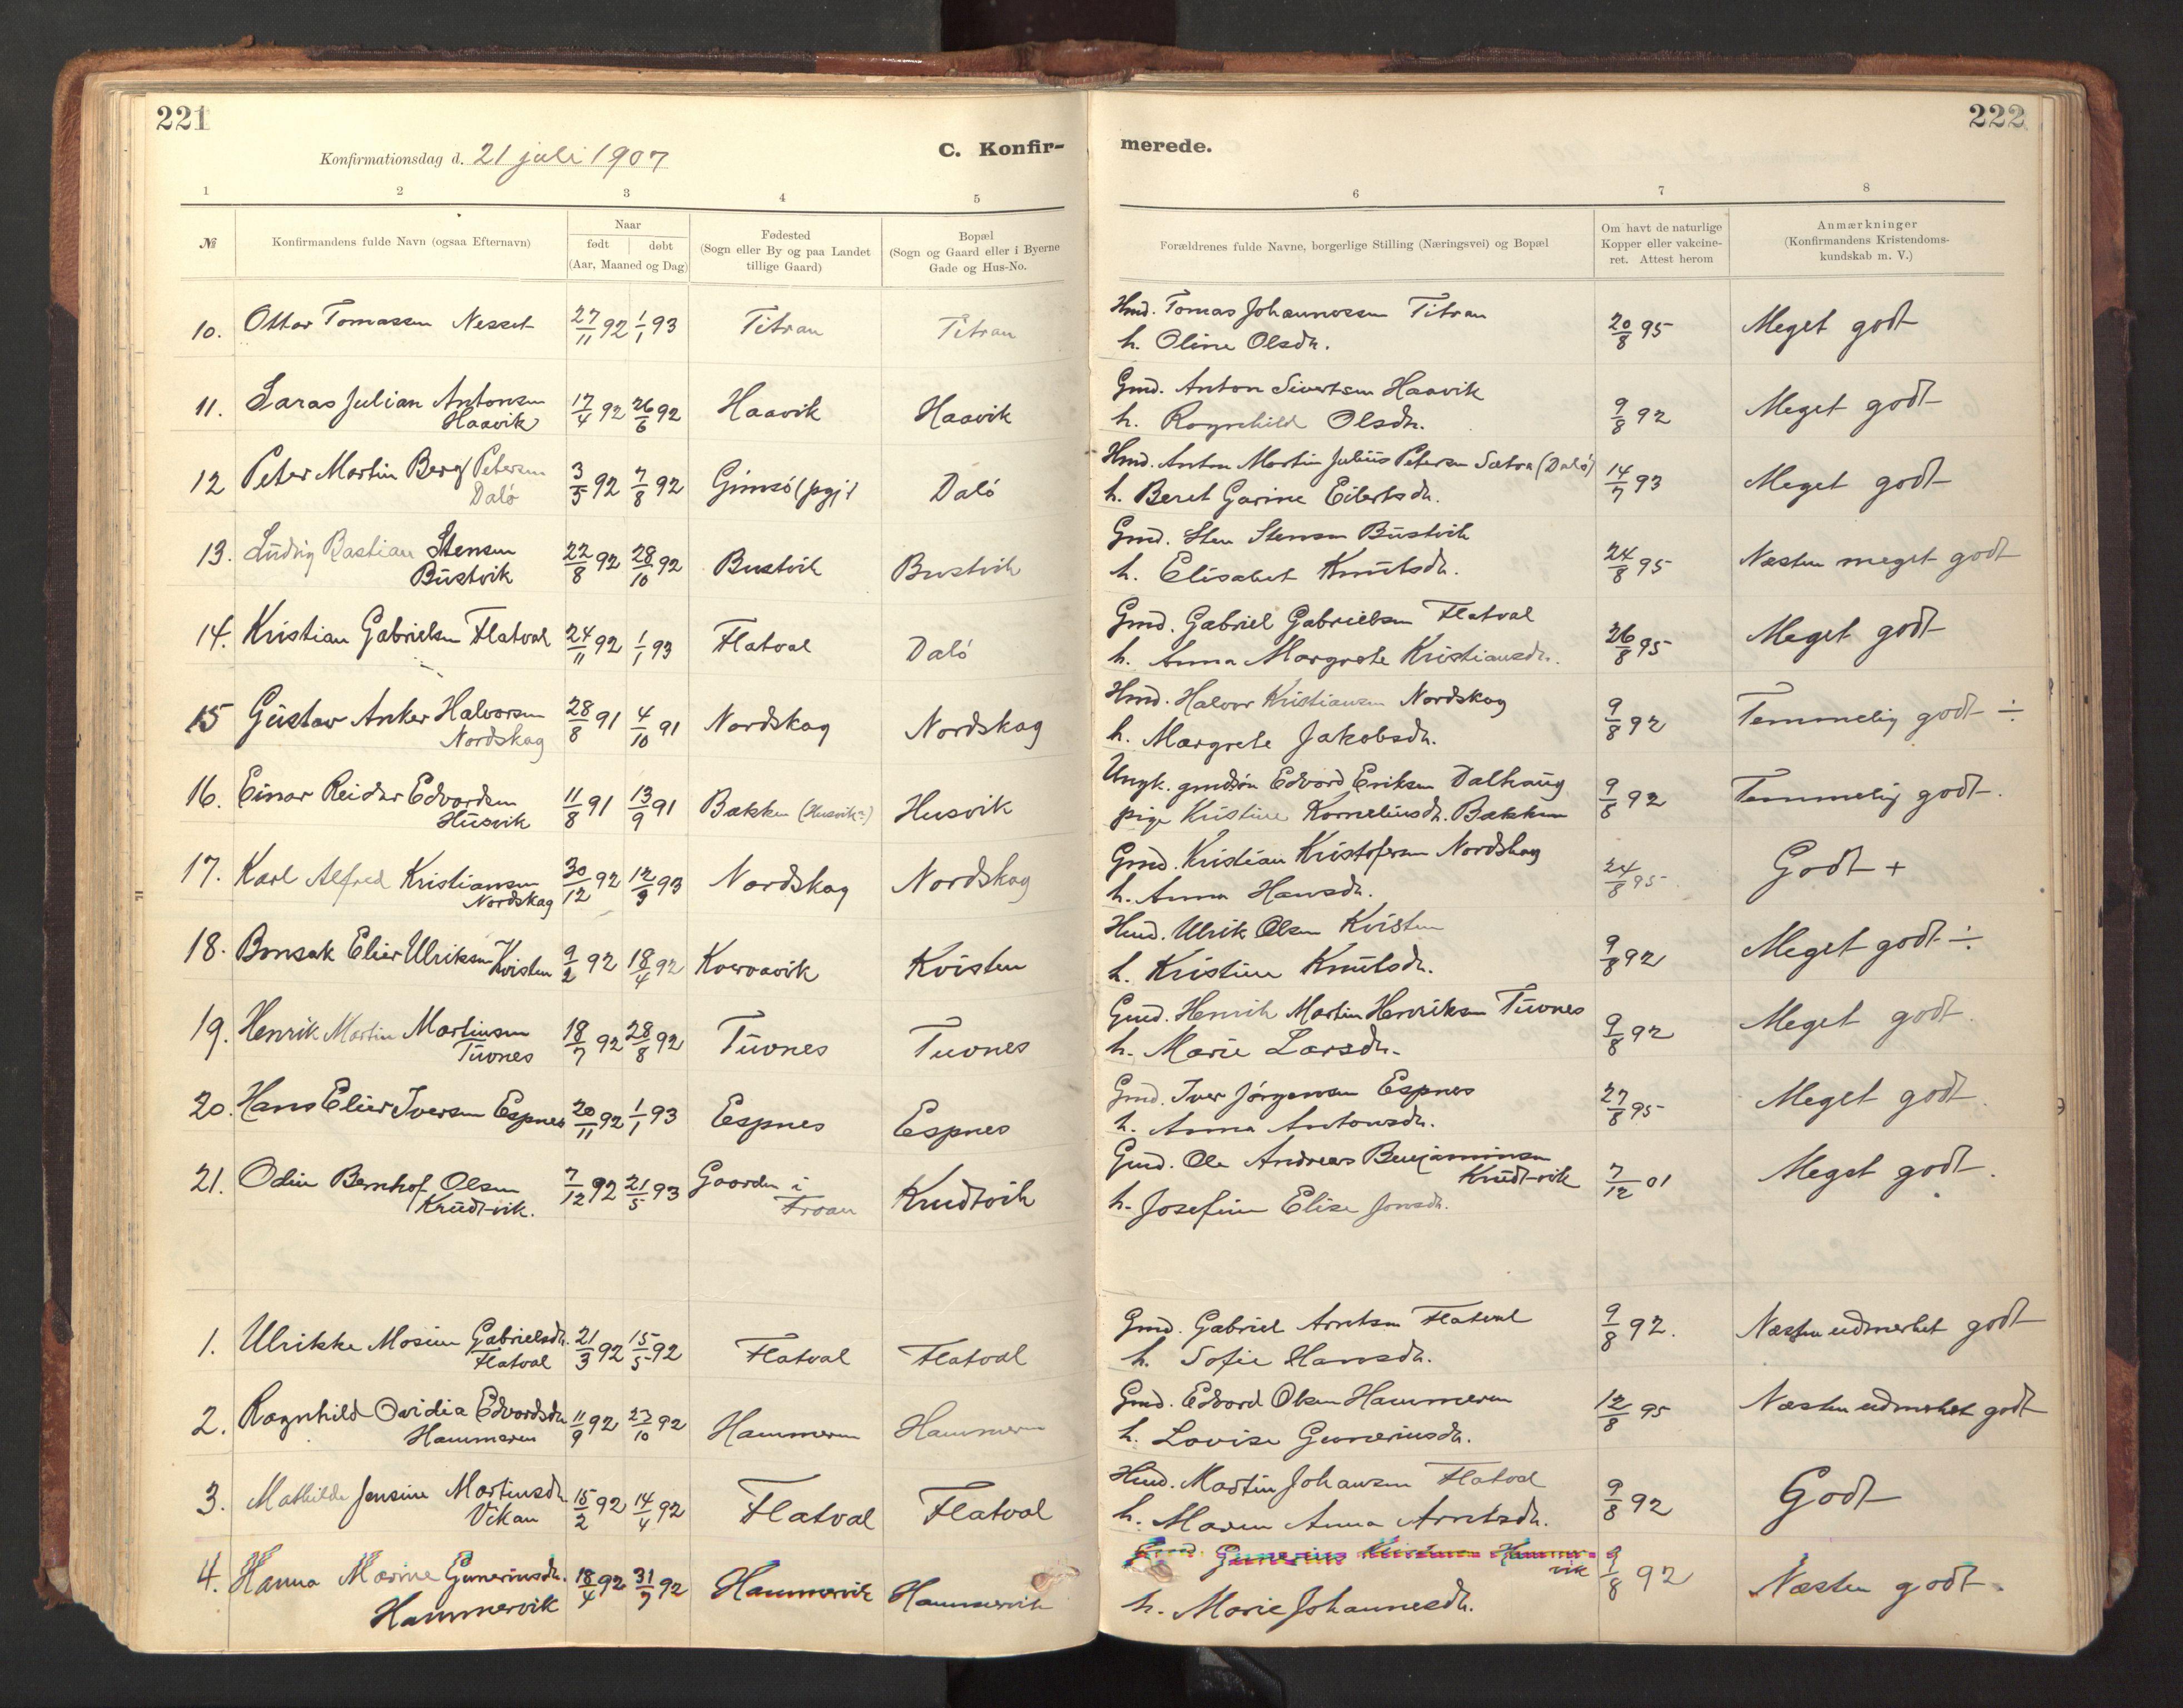 221
222
Konfirmationsdag d. 21 juli 1907
C. Konfir-
merede.
1 2 3 4 5 6 7 8
№
Konfirmandens fulde Navn (ogsaa Efternavn)
Naar
født døbt
(Aar, Maaned og Dag)
Fødested
(Sogn eller By og paa Landet
tillige Gaard)
Bopæl
(Sogn og Gaard eller i Byerne
Gade og Hus-No.
Forældrenes fulde Navne, borgerlige Stilling (Næringsvei) og Bopæl
Om havt de naturlige
Kopper eller vakcine-
ret. Attest herom
Anmærkninger
(Konfirmandens Kristendoms-
kundskab m. V.)
10. Ottar Tomassen Nesset 27/11 92 1/1 93 Titran Titran Hmd. Tomas Johannessen Titran 20/8 95 Meget godt
h. Oline Olsdn.
11. Laras Julian Antonsen 17/4 92 26/6 92 Haavik Haavik Gmd. Anton Sivertsen Haavik 9/8 92 Meget godt
Haavik h. Ragnhild Olsdn.
12 Peter Martin Berg Petersen 3/5 92 7/8 92 Gimsö (pgj) Dalö Hmd. Anton Martin Julius Petersen Sætra (Dalö) 14/7 93 Meget godt
Dalö h. Beret Garine Eilertsdn.
13. Ludvig Bastian Stensen 22/8 92 28/10 92 Bustvik Bustvik Gmd. Sten Stensen Bustvik 24/8 95 Næsten meget godt
Bustvik h. Elisabet Knutsdn.
14. Kristian Gabrielsen Flatval 24/11 92 1/1 93 Flatval Dalö Gmd. Gabriel Gabrielsen Flatval 26/8 95 Meget godt
h. Anna Margrete Kristiansdn.
15 Gustav Anker Halvorsen 28/8 91 4/10 91 Nordskag Nordskag Hmd. Halvor Kristiansen Nordskag 9/8 92 Temmelig godt ÷
Nordskag h. Margrete Jakobsdn.
16. Einar Reidar Edvardsen 11/8 91 13/9 91 Bakken (Husvik?) Husvik Ungk. gmdsön Edvard Eriksen Dalhaug 9/8 92 Temmelig godt.
Husvik pige Kristine Korneliusdn. Bakken
17. Karl Alfred Kristiansen 30/12 92 12/3 93 Nordskag Nordskag Gmd. Kristian Kristofersen Nordskag 24/8 95 Godt +
Nordskag h. Anna Hansdn.
18. Bonsak Elier Ulriksen Kvisten 9/2 92 18/4 92 Kvervavik Kvisten Hmd. Ulrik Olsen Kvisten 9/8 92 Meget godt ÷
h. Kristine Knutsdn.
19. Henrik Martin Martinsen 18/7 92 28/8 92 Tuvnes Tuvnes Gmd. Henrik Martin Henriksen Tuvnes 9/8 92 Meget godt.
Tuvnes h. Marie Larsdn.
20. Hans Elier Iversen Espnes 20/11 92 1/1 93 Espnes Espnes Gmd. Iver Jörgensen Espnes 27/8 95 Meget godt.
h. Anna Antonsdn.
21. Odin Bernhof Olsen 7/12 92 21/5 93 Gaarden i Knudtvik Gmd. Ole Andreas Benjaminsen 7/12 01 Meget godt.
Knudtvik. Froan Knudtvik
h. Josefine Elise Jonsdn.
1. Ulrikke Mosine Gabrielsdn. 21/3 92 15/5 92 Flatval Flatval Gmd. Gabriel Arntsen Flatval 9/8 92. Næsten udmerket godt
Flatval h. Sofie Hansdn.
2. Ragnhild Ovidia Edvardsdn 11/9 92 23/10 92 Hammeren Hammeren Gmd. Edvard Olsen Hammeren 12/8 95 Næsten udmerket godt
Hammeren h. Lovise Gunneriusdn.
3. Mathilde Jensine Martinsdn. 15/2 92 14/4 92 Flatval Flatval Hmd. Martin Johansen Flatval 9/8 92 Godt
Vikan h. Maren Anna Arntsdn.
4. Hanna Marine Gunneriusdn. 18/4 92 31/7 92 Hammervik Hammervik Gmd. Gunerius Kristensen Hammer- 9/8 92 Næsten godt.
Hammervik vik
h. Marie Johannesdn.